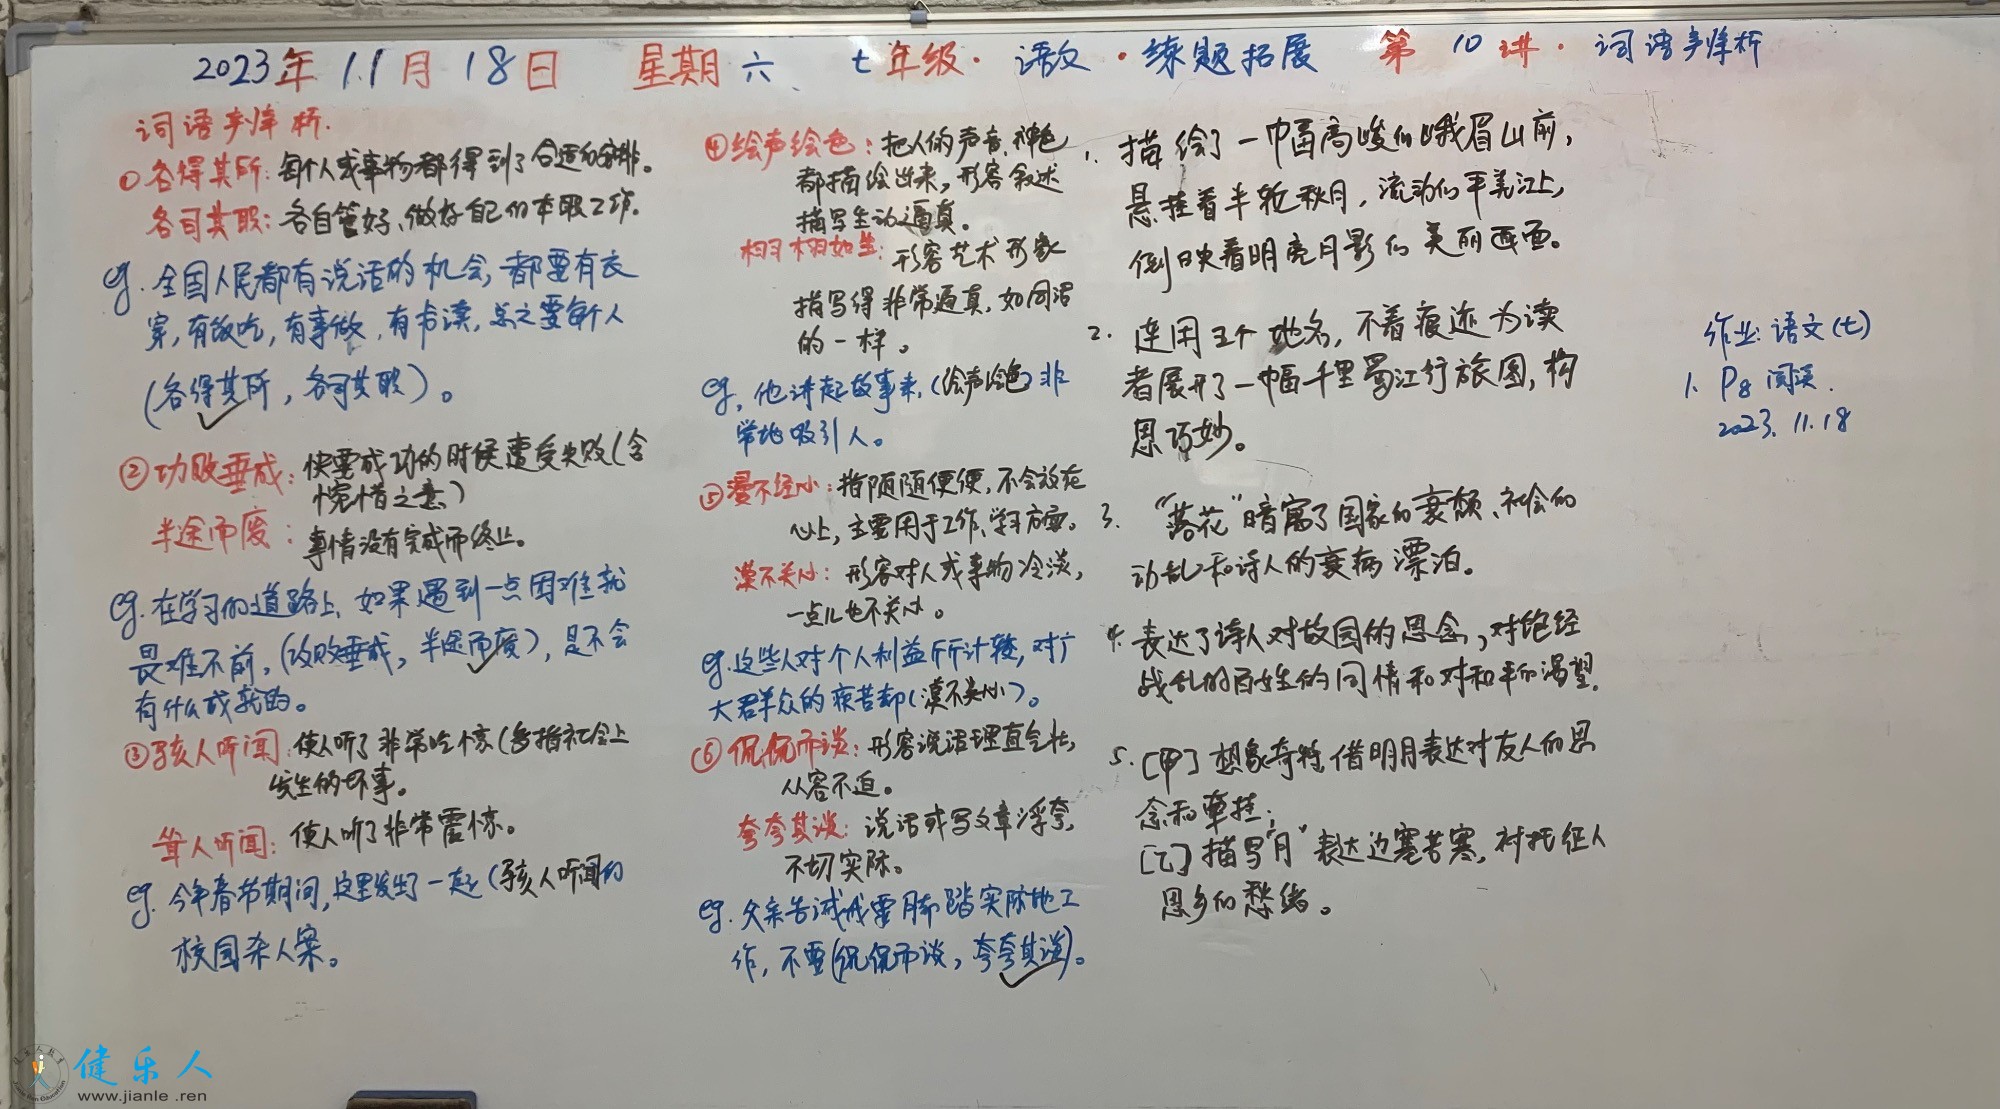 2023年11月18日 星期六 七年级·语文·练题拓展 第10讲·词语辨析
词语辨析.
①各得其所:每个人或事物都得到了合适的安排。
各司其职:各自管好、做好自己的本职工作.
eg.全国人民都有说话的机会,都要有衣
穿,有饭吃,有事做,有书读,总之要每个人
(各得其所,各司其职)。
②功败垂成:快要成功的时候遭受失败(含
惋惜之意)
半途而废:事情没有完成而终止。
eg.在学习的道路上,如果遇到一点困难就
畏难不前,(功败垂成,半途而废),是不会
有什么成就的。
③骇人听闻:使人听了非常吃惊(多指社会上
发生的坏事。
耸人听闻:使人听了非常震惊。
eg.今年春节期间,这里发生了一起(骇人听闻)的
校园杀人案。
④绘声绘色:把人的声音、神色
都描绘出来,形容叙述
描写生动逼真。
栩栩如生:形容艺术形象
描写得非常逼真,如同活
的一样。
eg,他讲起故事来,(绘声绘色)非
常地吸引人。
⑤漫不经心:指随随便便,不会放在
心上,主要用于工作、学习方面。
漠不关心:形容对人或事物冷淡,
一点儿也不关心。
eg.这些人对个人利益斤斤计较,对广
大群众的疾苦却(漠不关心)。
⑥侃侃而谈:形容说话理直气壮,
从容不迫。
夸夸其谈:说话或写文章浮夸,
不切实际。
eg.父亲告诫我要脚踏实际地工
作,不要(侃侃而谈,夸夸其谈)。
1.描绘了一幅高峻的峨眉山前,
悬挂着半轮秋月,流动的平羌江上,
倒映着明亮月影的美丽画面。
2.连用五个地名,不着痕迹为读
者展开了一幅千里蜀江行旅图,构
思巧妙。
3."落花"暗寓了国家的衰颓、社会的
动乱和诗人的衰病漂泊。
4.表达了诗人对故园的思念,对饱经
战乱的百姓的同情和对和平的渴望.
5.[甲]想象奇特,借明月表达对友人的思
念和牵挂;
[乙]描写"月"表达边塞苦寒,衬托征人
思乡的愁绪。
作业:语文(七)
1. P8 阅读.
2023.11.18
健乐人
www.jianle.ren